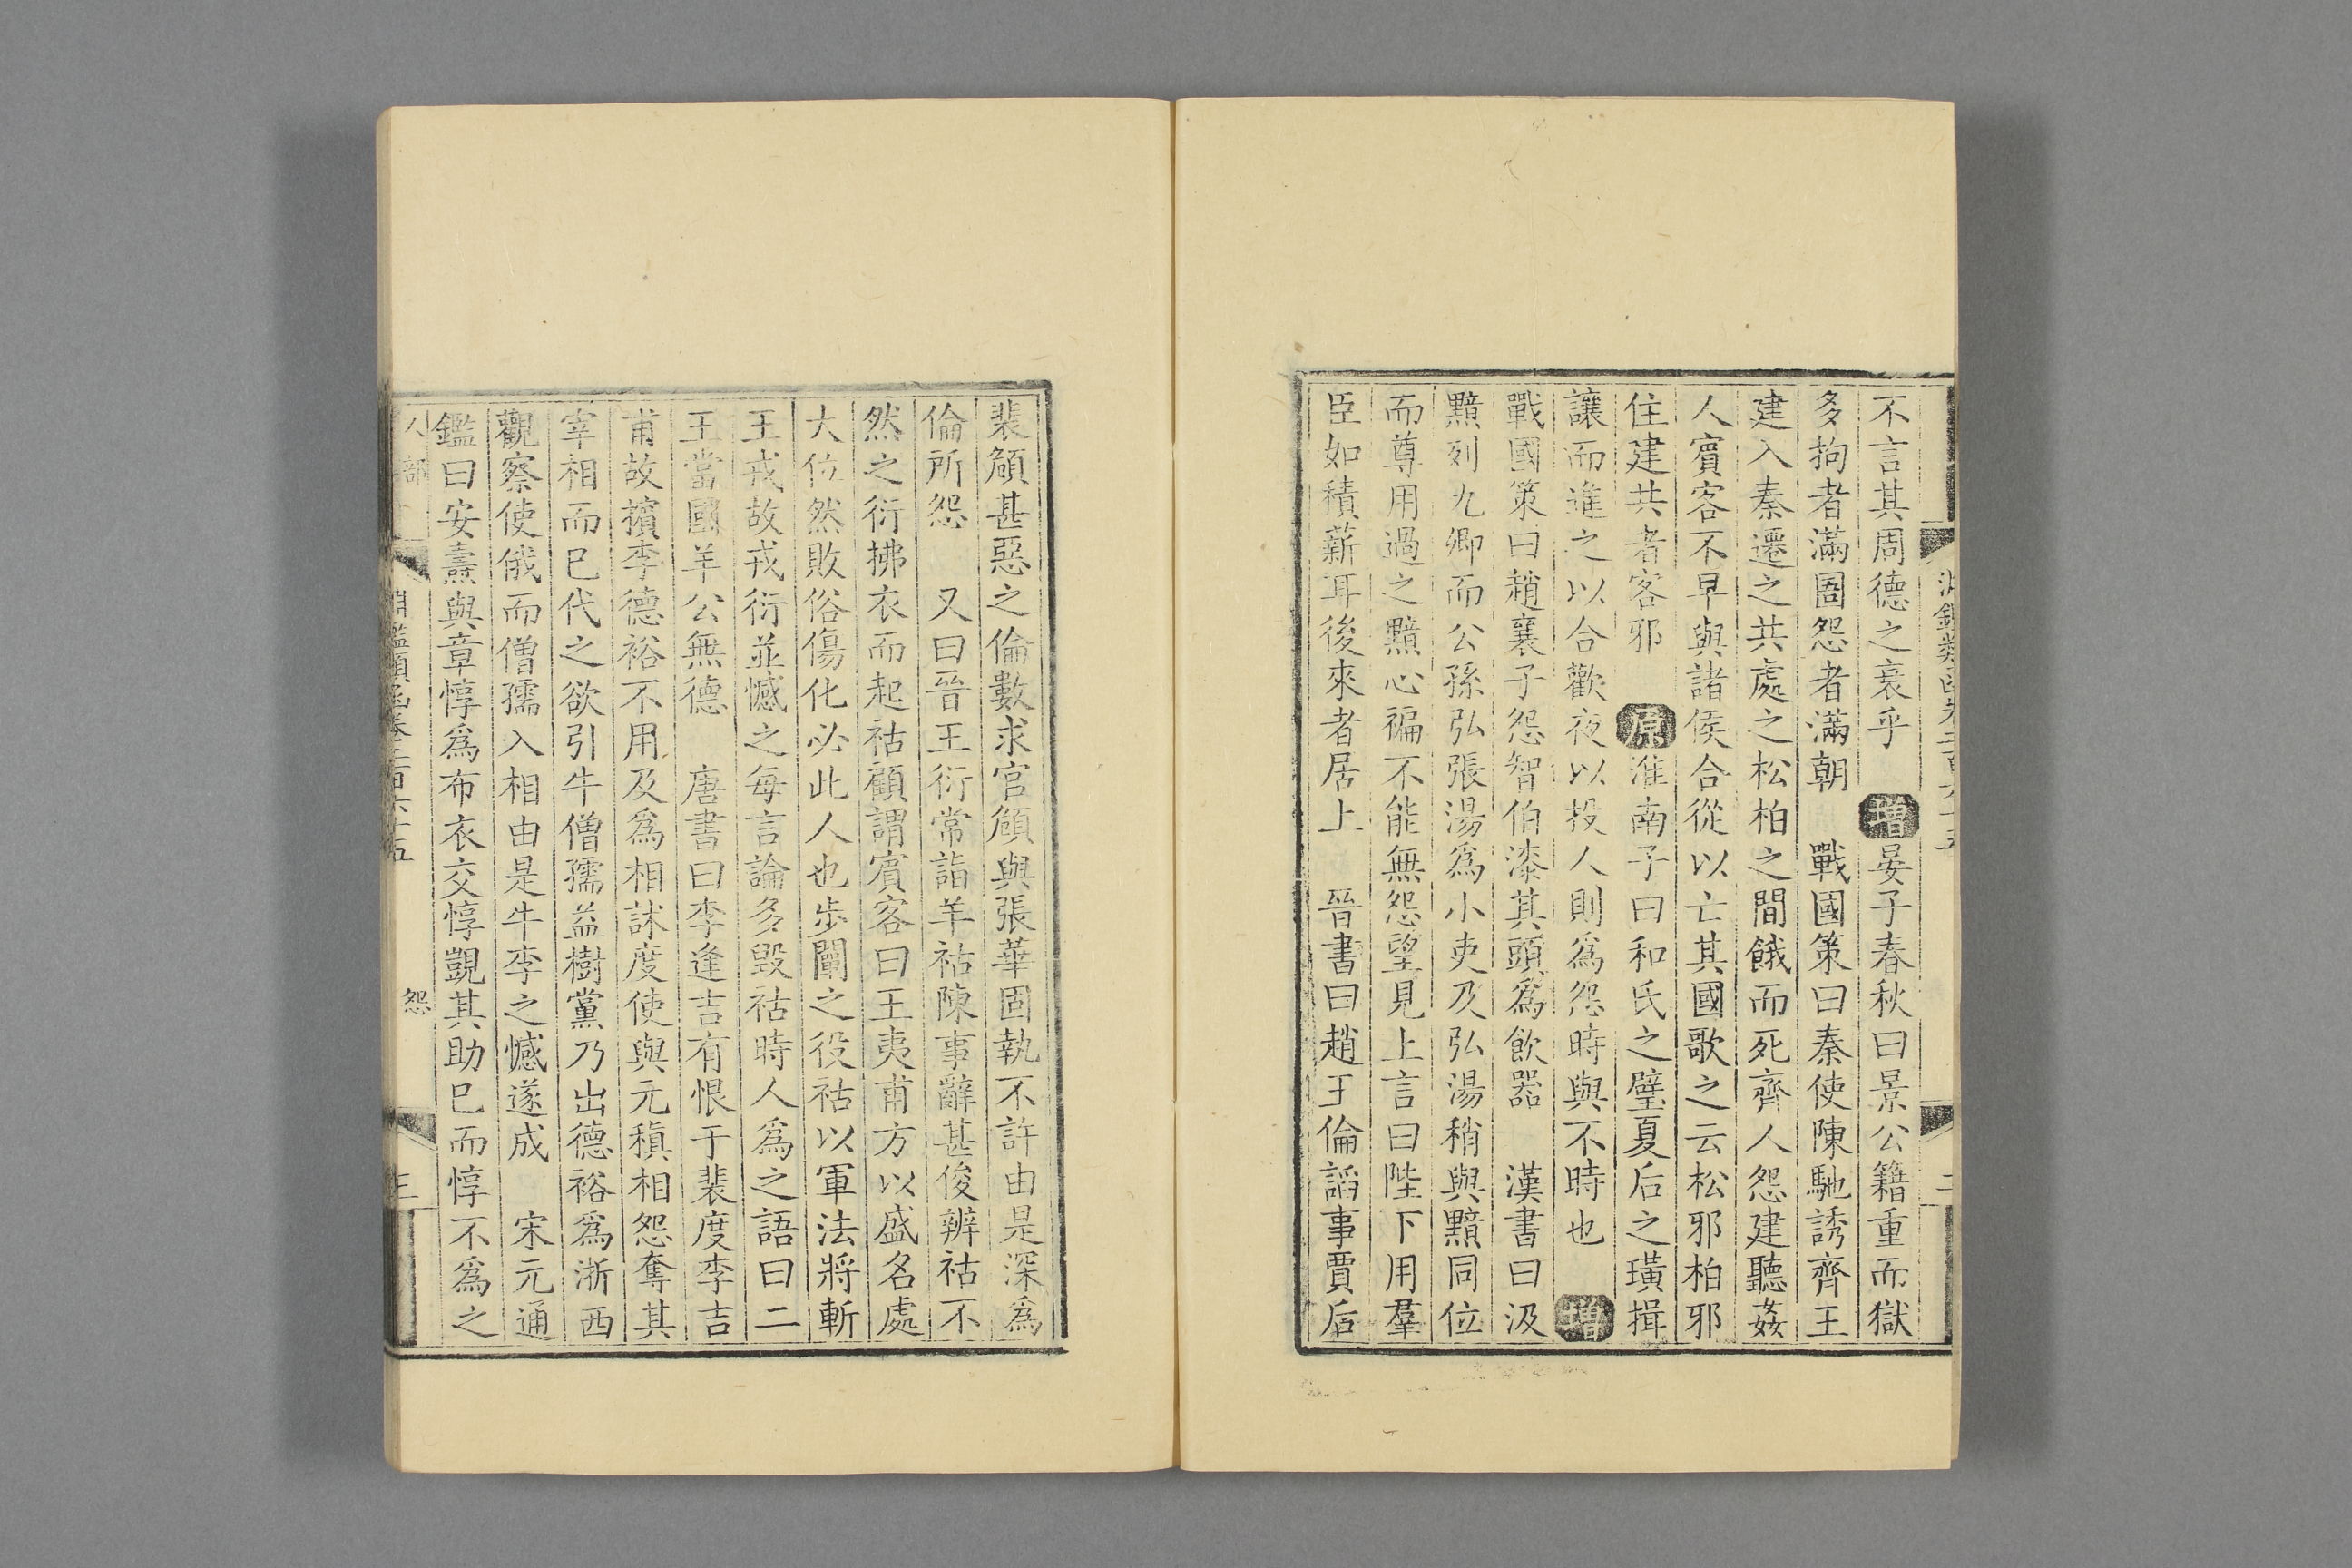 不言其周德之衰乎 增晏子春秋曰景公籍重而獄
多拘者滿圄怨者滿朝 戰國策曰秦使陳馳誘齊王
建入秦遷之共處之松柏之間餓而死齊人怨建聽姦
人賓客不早與諸侯合從以亡其國歌之云松邪柏邪
住建共者客邪 原淮南子曰和氏之璧夏后之璜揖
讓而進之以合歡夜以投人則爲怨時與不時也 增
戰國策曰趙襄子怨智伯漆其頭爲飲器 漢書曰汲
黯列九卿而公孫弘張湯爲小吏及弘湯稍與黯同位
而尊用過之黯心褊不能無怨望見上言曰陛下用羣
臣如積薪耳後來者居上 晉書曰趙王倫謟事賈后
裴頠甚惡之倫數求官頠與張華固執不許由是深爲
倫所怨 又曰晉王衍常詣羊祜陳事辭甚俊辨祜不
然之衍拂衣而起祜顧謂賓客曰王夷甫方以盛名處
大位然敗俗傷化必此人也步闡之役祜以軍法將斬
王戎故戎衍並憾之每言論多毀祜時人爲之語曰二
王當國羊公無德 唐書曰李逢吉有恨于裴度李吉
甫故擯李德裕不用及爲相訹度使與元稹相怨奪其
宰相而已代之欲引牛僧孺益樹黨乃出德裕爲浙西
觀察使俄而僧孺入相由是牛李之憾遂成 宋元通
鑑曰安壽與章惇爲布衣交惇覬其助已而惇不爲之
人部 淵鑑類函卷三百六十五 怨 三